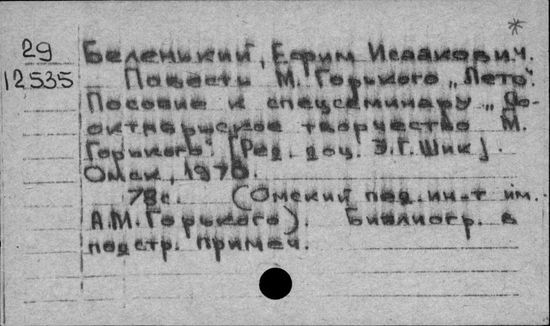 *
29 Беленький, Ефрим Исаакович.
12535 Повесть М. Горького „Лето".
Пособие к спецсеминару „До-
октябрьское творчество М.
Горького". [Ред. доц. Э.Г. Шик].
Омск, 1978.
78 с. (Омский пед. ин-т им.
А.М. Горького). Библиогр. в
подстр. примеч.